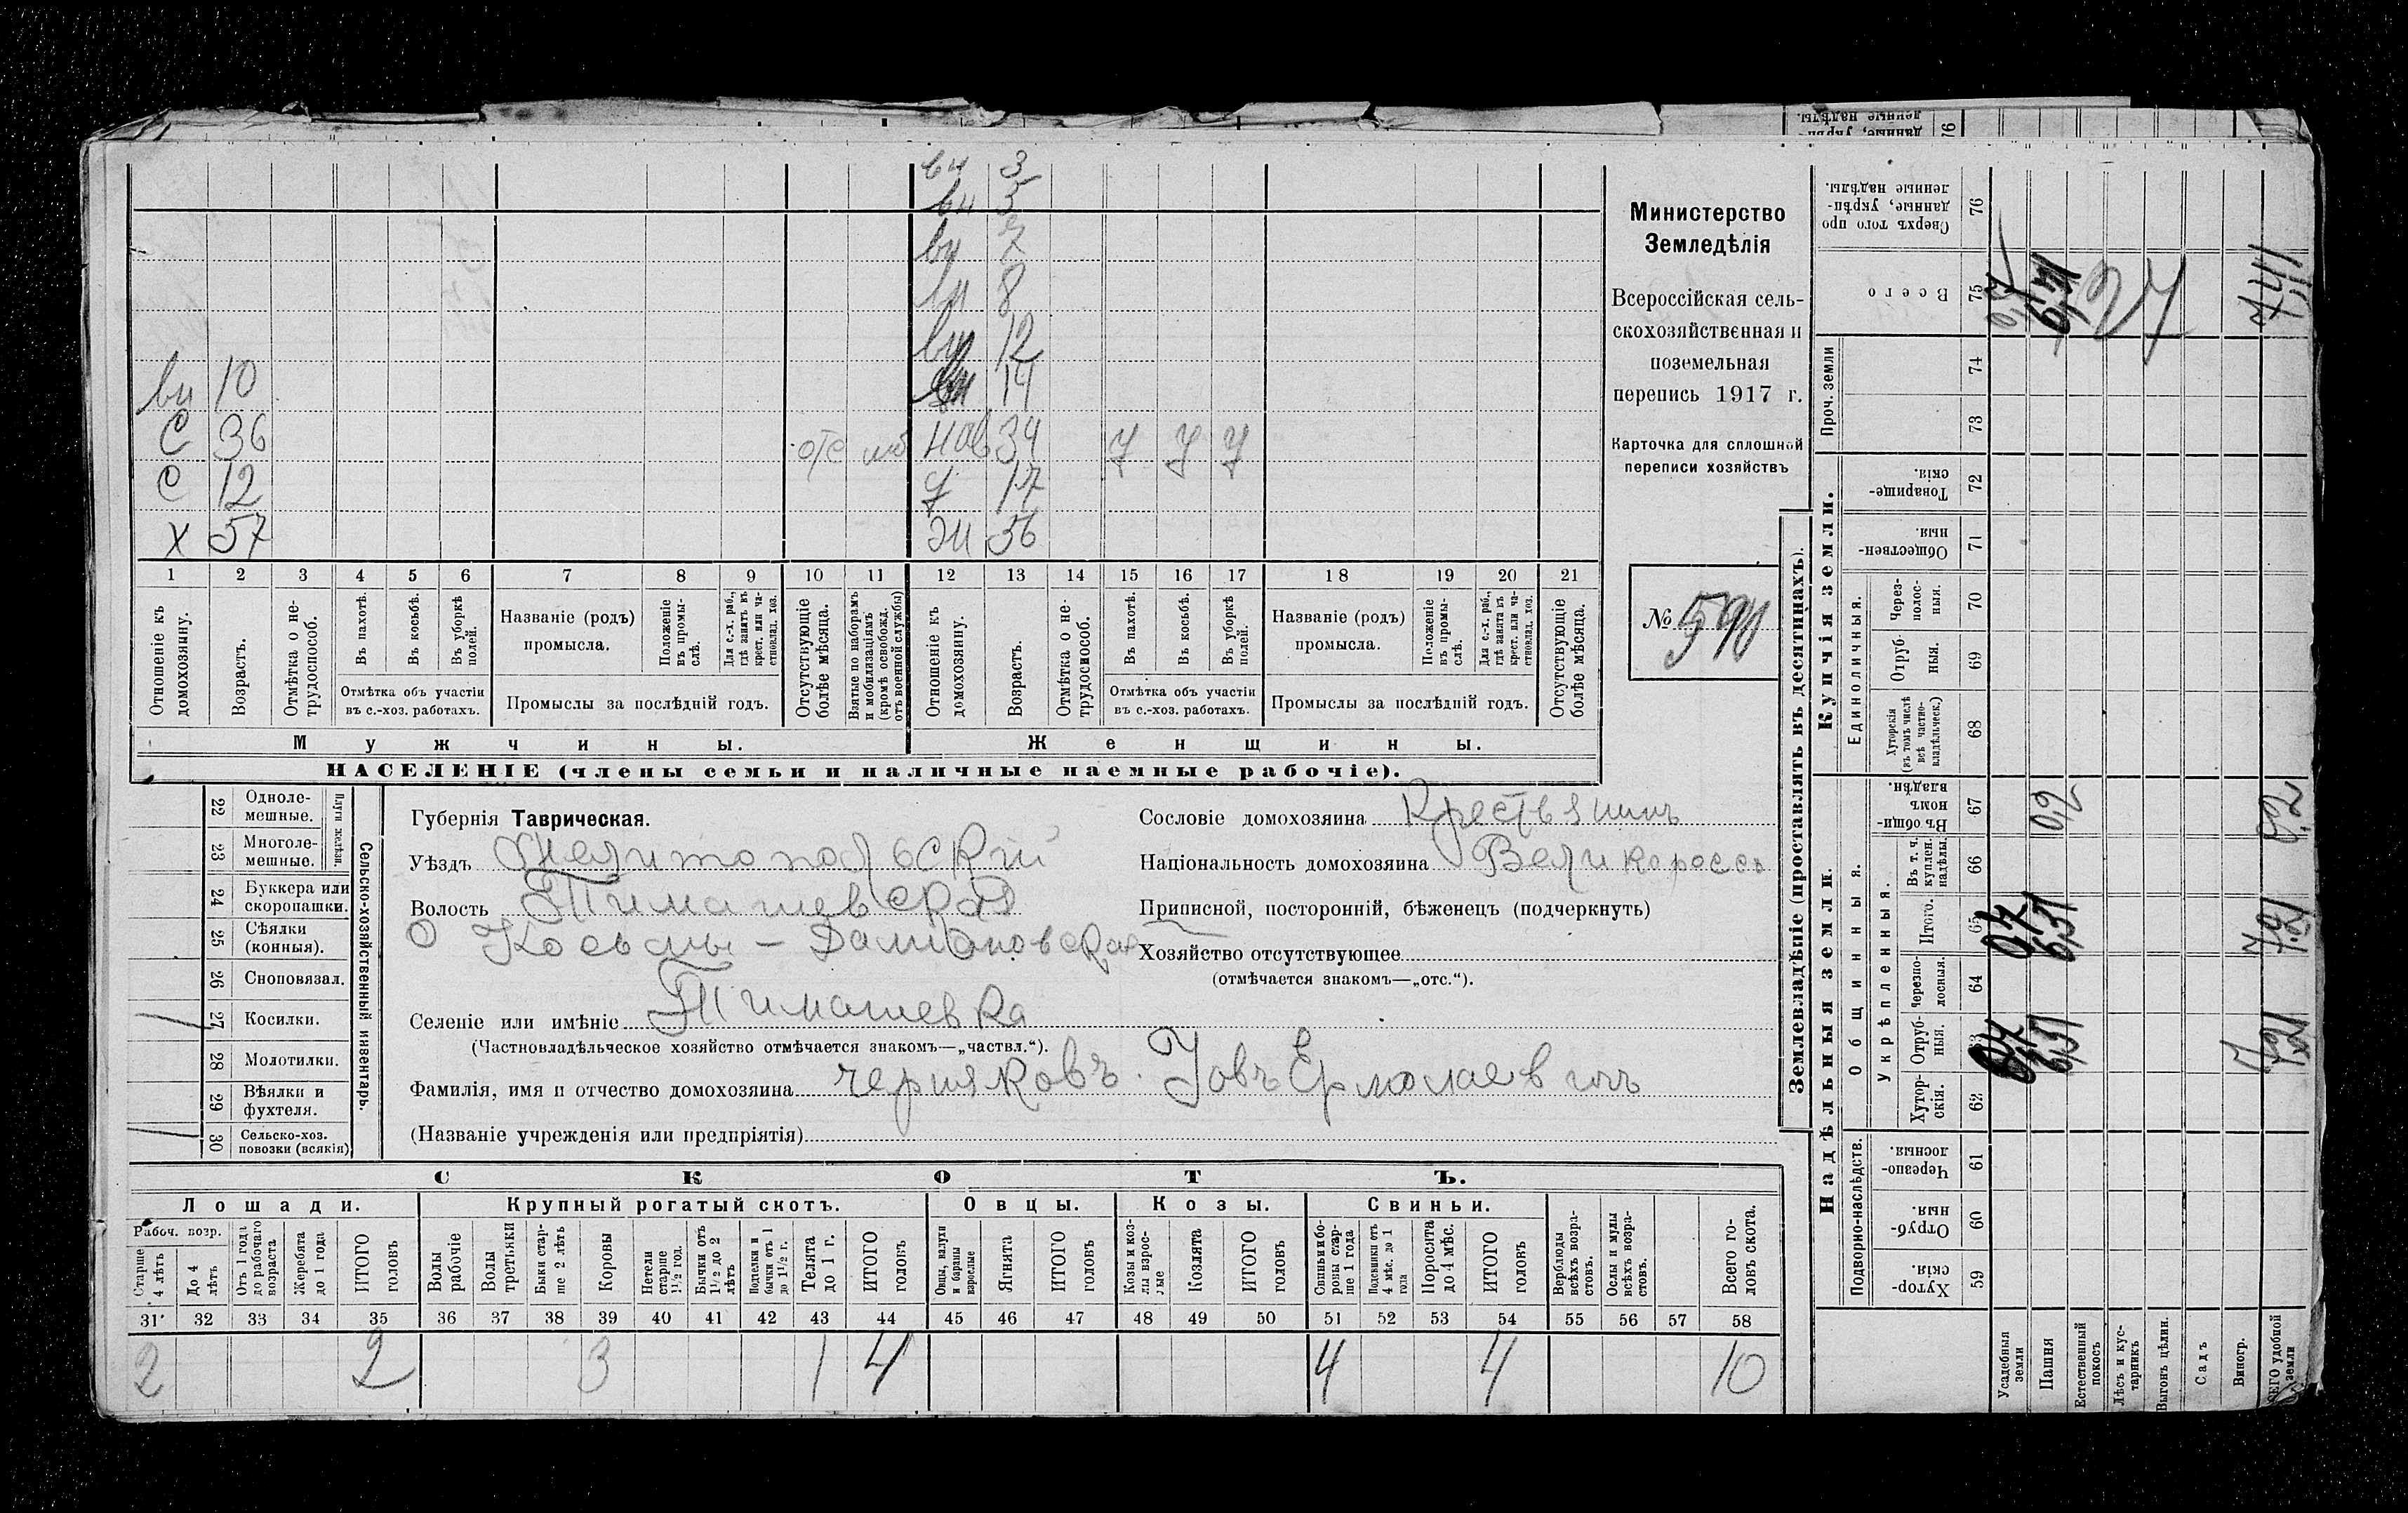 вн 3
вн 5
вн 7
вн 8
вн 12
вн 10 вн 14
С 36 отс моб нев 34 У У У
С 12 д 17
Х 57 ж 56
1 2 3 4 5 6 7 8 9 10 11 12 13 14 15 16 17 18 19 20 21
Отношеніе къ домохозяину.
Возрастъ.
Отмѣтка о нетрудоспособ.
Въ пахотѣ.
Въ косьбѣ.
Въ уборкѣ полей.
Отмѣтка объ участіи въ с.-хоз. работахъ.
Названіе (родъ) промысла.
Положеніе въ промыслѣ.
Для с.-х. раб., гдѣ занятъ въ крест. или частновлад. хоз.
Промыслы за послѣдній годъ.
Отсутствующіе болѣе мѣсяца.
Взятые по наборамъ и мобилизаціямъ (кромѣ освобожд. отъ военной службы)
Отношеніе къ домохозяину.
Возрастъ.
Отмѣтка о нетрудоспособ.
Въ пахотѣ.
Въ косьбѣ.
Въ уборкѣ полей.
Отмѣтка объ участіи въ с.-хоз. работахъ.
Названіе (родъ) промысла.
Положеніе въ промыслѣ.
Для с.-х. раб., гдѣ занята въ крест. или частновлад. хоз.
Промыслы за послѣдній годъ.
Отсутствующіе болѣе мѣсяца.
Мужчины. Женщины.
НАСЕЛЕНІЕ (члены семьи и наличные наемные рабочіе).
Министерство
Земледѣлія
Всероссійская сель-
скохозяйственная и
поземельная
перепись 1917 г.
Карточка для сплошной
переписи хозяйствъ
№ 590
Сельско-хозяйственный инвентарь.
Плуги желѣзн.
22 Одноле-
мешные.
23 Многоле-
мешные.
24 Буккера или
скоропашки.
25 Сѣялки
(конныя).
26 Сноповязал.
27 Косилки. 1
28 Молотилки.
29 Вѣялки и
фухтеля.
30 Сельско-хоз.
повозки (всякія) 1
Губернія Таврическая.
Уѣздъ Мелитопольскій
Волость Тимашевская
О Косьмы-Даміановская
Селеніе или имѣніе Тимашевка
(Частновладѣльческое хозяйство отмѣчается знакомъ—„частвл.“).
Фамилія, имя и отчество домохозяина Черняковъ Іовъ Ермолаевичъ
(Названіе учрежденія или предпріятія)
Сословіе домохозяина Крестьянинъ
Національность домохозяина Великороссъ
Приписной, посторонній, бѣженецъ (подчеркнуть)
Хозяйство отсутствующее
(отмѣчается знакомъ—„отс.“).
СКОТЪ.
Лошади. Крупный рогатый скотъ. Овцы. Козы. Свиньи.
Рабоч. возр.
Старше 4 лѣтъ
До 4 лѣтъ
Отъ 1 года до рабочаго возраста
Жеребята до 1 года
ИТОГО головъ
Волы рабочіе
Волы третьяки
Быки старше 2 лѣтъ
Коровы
Нетели старше 1½ год.
Бычки отъ 1½ до 2 лѣтъ
Подтелки и бычки отъ 1 до 1½ г.
Телята до 1 г.
ИТОГО головъ
Овцы, валухи и бараны взрослые
Ягнята
ИТОГО головъ
Козы и козлы взрослые
Козлята
ИТОГО головъ
Свиньи и боровы старше 1 года
Подсвинки отъ 4 мѣс. до 1 года
Поросята до 4 мѣс.
ИТОГО головъ
Верблюды всѣхъ возрастовъ.
Ослы и мулы всѣхъ возрастовъ.
Всего головъ скота.
31 32 33 34 35 36 37 38 39 40 41 42 43 44 45 46 47 48 49 50 51 52 53 54 55 56 57 58
2 2 3 1 4 4 4 10
Землевладѣніе (проставлять въ десятинахъ).
Надѣльныя земли. Купчія земли.
Подворно-наслѣдств.
Общинныя.
Укрѣпленныя.
Единоличныя.
Проч. земли
59 Хуторскія
60 Отрубныя.
61 Черезполосныя
62 Хуторскія.
63 Отрубныя.
64 Черезполосныя.
65 Итого.
66 Въ т. ч. куплен. надѣлы.
67 Въ общинномъ владѣн.
68 Хуторскія (въ томъ числѣ всѣ частновладѣльческ.)
69 Отрубныя.
70 Черезполосныя.
71 Общественныя
72 Товарищескія.
73
74
75 Всего
76 Сверхъ того проданные, укрѣпленные надѣлы.
Усадебныя земли
Пашня
Естественный покосъ
Лѣсъ и кустарникъ
Выгонъ цѣлин.
Садъ
Виногр.
ВСЕГО удобной земли
0,7 6,31
0,2